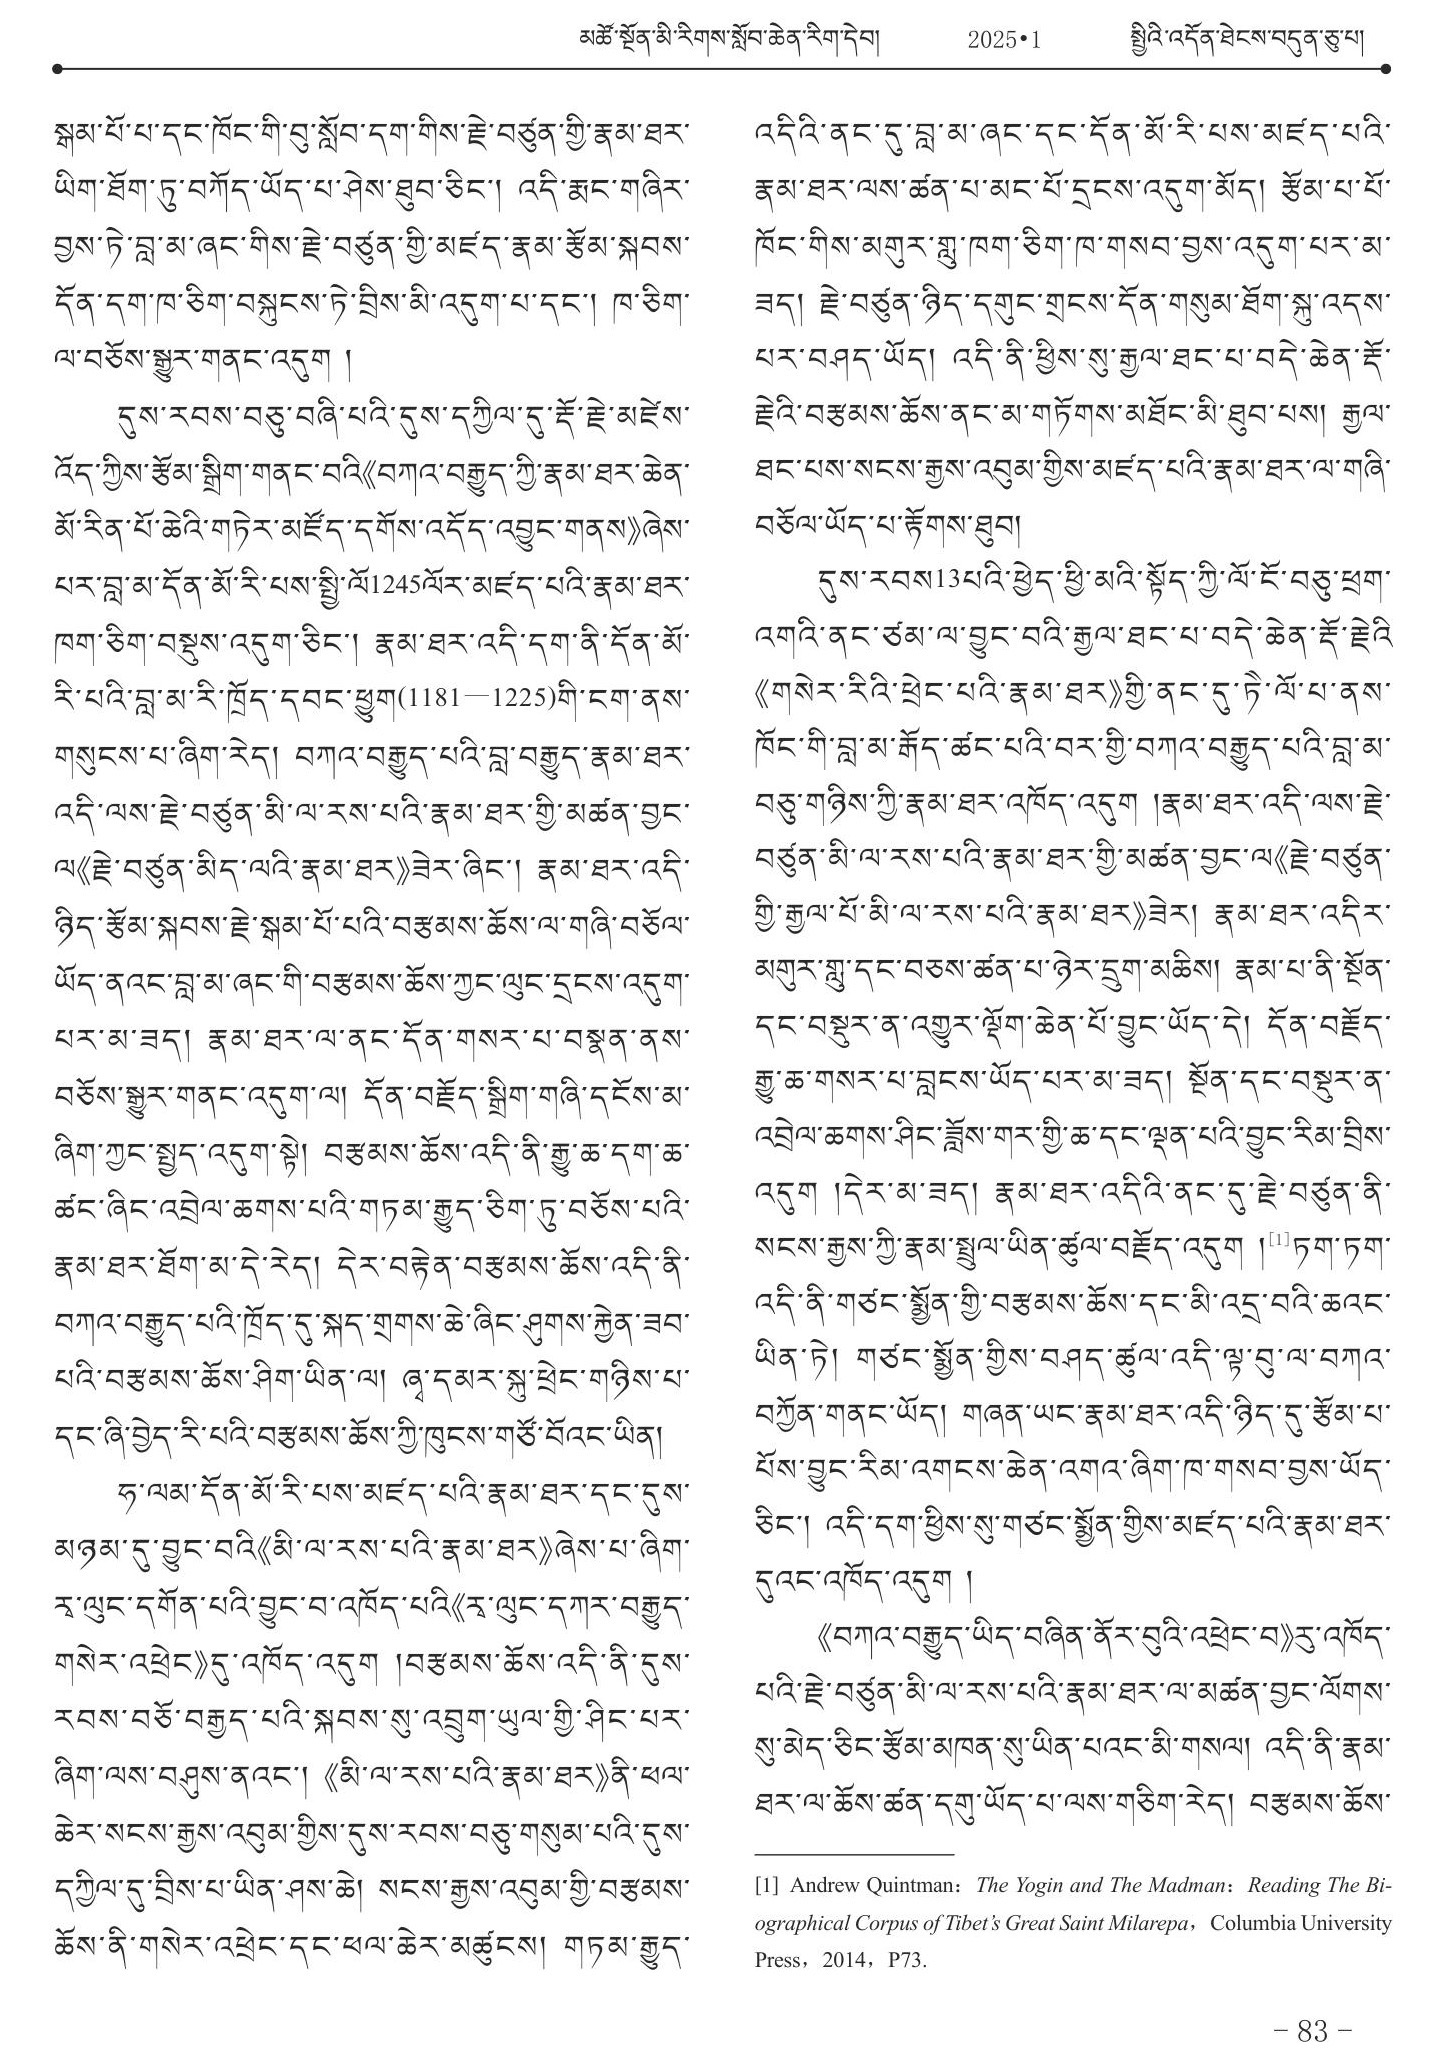 མཚོ་སྔོན་མི་རིགས་སློབ་ཆེན་རིག་དེབ། 2025•1 སྤྱིའི་འདོན་ཐེངས་བདུན་ཅུ་པ།
སྒམ་པོ་པ་དང་ཁོང་གི་བུ་སློབ་དག་གིས་རྗེ་བཙུན་གྱི་རྣམ་ཐར་
ཡིག་ཐོག་ཏུ་བཀོད་ཡོད་པ་ཤེས་ཐུབ་ཅིང་། འདི་རྨང་གཞིར་
བྱས་ཏེ་བླ་མ་ཞང་གིས་རྗེ་བཙུན་གྱི་མཛད་རྣམ་རྩོམ་སྐབས་
དོན་དག་ཁ་ཅིག་བསྐུངས་ཏེ་བྲིས་མི་འདུག་པ་དང་། ཁ་ཅིག་
ལ་བཅོས་སྒྱུར་གནང་འདུག །
དུས་རབས་བཅུ་བཞི་པའི་དུས་དཀྱིལ་དུ་རྡོ་རྗེ་མཛེས་
འོད་ཀྱིས་རྩོམ་སྒྲིག་གནང་བའི《བཀའ་བརྒྱུད་ཀྱི་རྣམ་ཐར་ཆེན་
མོ་རིན་པོ་ཆེའི་གཏེར་མཛོད་དགོས་འདོད་འབྱུང་གནས》ཞེས་
པར་བླ་མ་དོན་མོ་རི་པས་སྤྱི་ལོ1245ལོར་མཛད་པའི་རྣམ་ཐར་
ཁག་ཅིག་བསྡུས་འདུག་ཅིང་། རྣམ་ཐར་འདི་དག་ནི་དོན་མོ་
རི་པའི་བླ་མ་རི་ཁྲོད་དབང་ཕྱུག(1181—1225)གི་ངག་ནས་
གསུངས་པ་ཞིག་རེད། བཀའ་བརྒྱུད་པའི་བླ་བརྒྱུད་རྣམ་ཐར་
འདི་ལས་རྗེ་བཙུན་མི་ལ་རས་པའི་རྣམ་ཐར་གྱི་མཚན་བྱང་
ལ《རྗེ་བཙུན་མིད་ལའི་རྣམ་ཐར》ཟེར་ཞིང་། རྣམ་ཐར་འདི་
ཉིད་རྩོམ་སྐབས་རྗེ་སྒམ་པོ་པའི་བརྩམས་ཆོས་ལ་གཞི་བཅོལ་
ཡོད་ནའང་བླ་མ་ཞང་གི་བརྩམས་ཆོས་ཀྱང་ལུང་དྲངས་འདུག་
པར་མ་ཟད། རྣམ་ཐར་ལ་ནང་དོན་གསར་པ་བསྣན་ནས་
བཅོས་སྒྱུར་གནང་འདུག་ལ། དོན་བརྗོད་སྒྲིག་གཞི་དངོས་མ་
ཞིག་ཀྱང་སྤྱད་འདུག་སྟེ། བརྩམས་ཆོས་འདི་ནི་རྒྱུ་ཆ་དག་ཆ་
ཚང་ཞིང་འབྲེལ་ཆགས་པའི་གཏམ་རྒྱུད་ཅིག་ཏུ་བཅོས་པའི་
རྣམ་ཐར་ཐོག་མ་དེ་རེད། དེར་བརྟེན་བརྩམས་ཆོས་འདི་ནི་
བཀའ་བརྒྱུད་པའི་ཁྲོད་དུ་སྐད་གྲགས་ཆེ་ཞིང་ཤུགས་རྐྱེན་ཟབ་
པའི་བརྩམས་ཆོས་ཤིག་ཡིན་ལ། ཞྭ་དམར་སྐུ་ཕྲེང་གཉིས་པ་
དང་ཞི་བྱེད་རི་པའི་བརྩམས་ཆོས་ཀྱི་ཁུངས་གཙོ་བོའང་ཡིན།
ཧ་ལམ་དོན་མོ་རི་པས་མཛད་པའི་རྣམ་ཐར་དང་དུས་
མཉམ་དུ་བྱུང་བའི《མི་ལ་རས་པའི་རྣམ་ཐར》ཞེས་པ་ཞིག་
རྭ་ལུང་དགོན་པའི་བྱུང་བ་འཁོད་པའི《རྭ་ལུང་དཀར་བརྒྱུད་
གསེར་འཕྲེང》དུ་འཁོད་འདུག །བརྩམས་ཆོས་འདི་ནི་དུས་
རབས་བཅོ་བརྒྱད་པའི་སྐབས་སུ་འབྲུག་ཡུལ་གྱི་ཤིང་པར་
ཞིག་ལས་བཤུས་ནའང་། 《མི་ལ་རས་པའི་རྣམ་ཐར》ནི་ཕལ་
ཆེར་སངས་རྒྱས་འབུམ་གྱིས་དུས་རབས་བཅུ་གསུམ་པའི་དུས་
དཀྱིལ་དུ་བྲིས་པ་ཡིན་ཤས་ཆེ། སངས་རྒྱས་འབུམ་གྱི་བརྩམས་
ཆོས་ནི་གསེར་འཕྲེང་དང་ཕལ་ཆེར་མཚུངས། གཏམ་རྒྱུད་
འདིའི་ནང་དུ་བླ་མ་ཞང་དང་དོན་མོ་རི་པས་མཛད་པའི་
རྣམ་ཐར་ལས་ཚན་པ་མང་པོ་དྲངས་འདུག་མོད། རྩོམ་པ་པོ་
ཁོང་གིས་མགུར་གླུ་ཁག་ཅིག་ཁ་གསབ་བྱས་འདུག་པར་མ་
ཟད། རྗེ་བཙུན་ཉིད་དགུང་གྲངས་དོན་གསུམ་ཐོག་སྐུ་འདས་
པར་བཤད་ཡོད། འདི་ནི་ཕྱིས་སུ་རྒྱལ་ཐང་པ་བདེ་ཆེན་རྡོ་
རྗེའི་བརྩམས་ཆོས་ནང་མ་གཏོགས་མཐོང་མི་ཐུབ་པས། རྒྱལ་
ཐང་པས་སངས་རྒྱས་འབུམ་གྱིས་མཛད་པའི་རྣམ་ཐར་ལ་གཞི་
བཅོལ་ཡོད་པ་རྟོགས་ཐུབ།
དུས་རབས13པའི་ཕྱེད་ཕྱི་མའི་སྟོད་ཀྱི་ལོ་ངོ་བཅུ་ཕྲག་
འགའི་ནང་ཙམ་ལ་བྱུང་བའི་རྒྱལ་ཐང་པ་བདེ་ཆེན་རྡོ་རྗེའི
《གསེར་རིའི་ཕྲེང་པའི་རྣམ་ཐར》གྱི་ནང་དུ་ཏེ་ལོ་པ་ནས་
ཁོང་གི་བླ་མ་རྒོད་ཚང་པའི་བར་གྱི་བཀའ་བརྒྱུད་པའི་བླ་མ་
བཅུ་གཉིས་ཀྱི་རྣམ་ཐར་འཁོད་འདུག །རྣམ་ཐར་འདི་ལས་རྗེ་
བཙུན་མི་ལ་རས་པའི་རྣམ་ཐར་གྱི་མཚན་བྱང་ལ《རྗེ་བཙུན་
གྱི་རྒྱལ་པོ་མི་ལ་རས་པའི་རྣམ་ཐར》ཟེར། རྣམ་ཐར་འདིར་
མགུར་གླུ་དང་བཅས་ཚན་པ་ཉེར་དྲུག་མཆིས། རྣམ་པ་ནི་སྔོན་
དང་བསྡུར་ན་འགྱུར་ལྡོག་ཆེན་པོ་བྱུང་ཡོད་དེ། དོན་བརྗོད་
རྒྱུ་ཆ་གསར་པ་བླངས་ཡོད་པར་མ་ཟད། སྔོན་དང་བསྡུར་ན་
འབྲེལ་ཆགས་ཤིང་ཟློས་གར་གྱི་ཆ་དང་ལྡན་པའི་བྱུང་རིམ་བྲིས་
འདུག །དེར་མ་ཟད། རྣམ་ཐར་འདིའི་ནང་དུ་རྗེ་བཙུན་ནི་
སངས་རྒྱས་ཀྱི་རྣམ་སྤྲུལ་ཡིན་ཚུལ་བརྗོད་འདུག །[1]ཏག་ཏག་
འདི་ནི་གཙང་སྨྱོན་གྱི་བརྩམས་ཆོས་དང་མི་འདྲ་བའི་ཆའང་
ཡིན་ཏེ། གཙང་སྨྱོན་གྱིས་བཤད་ཚུལ་འདི་ལྟ་བུ་ལ་བཀའ་
བཀྱོན་གནང་ཡོད། གཞན་ཡང་རྣམ་ཐར་འདི་ཉིད་དུ་རྩོམ་པ་
པོས་བྱུང་རིམ་འགངས་ཆེན་འགའ་ཞིག་ཁ་གསབ་བྱས་ཡོད་
ཅིང་། འདི་དག་ཕྱིས་སུ་གཙང་སྨྱོན་གྱིས་མཛད་པའི་རྣམ་ཐར་
དུའང་འཁོད་འདུག །
《བཀའ་བརྒྱུད་ཡིད་བཞིན་ནོར་བུའི་འཕྲེང་བ》རུ་འཁོད་
པའི་རྗེ་བཙུན་མི་ལ་རས་པའི་རྣམ་ཐར་ལ་མཚན་བྱང་ལོགས་
སུ་མེད་ཅིང་རྩོམ་མཁན་སུ་ཡིན་པའང་མི་གསལ། འདི་ནི་རྣམ་
ཐར་ལ་ཆོས་ཚན་དགུ་ཡོད་པ་ལས་གཅིག་རེད། བརྩམས་ཆོས་
[1] Andrew Quintman：The Yogin and The Madman：Reading The Bi-
ographical Corpus of Tibet’s Great Saint Milarepa，Columbia University
Press，2014，P73.
– 83 –